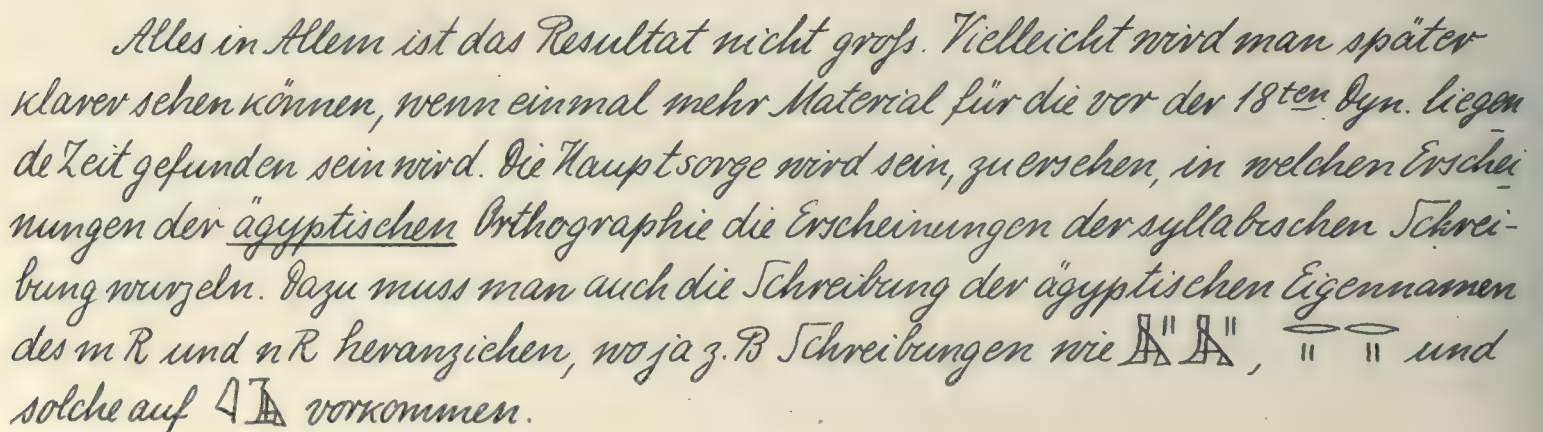 Alles in Allem ist das Resultat nicht groſs. Vielleicht wird man später
klarer sehen können, wenn einmal mehr Material für die vor der 18ten Dyn. liegen
de Zeit gefunden sein wird. Die Hauptsorge wird sein, zu ersehen, in welchen Erschei
nungen der ägyptischen Orthographie die Erscheinungen der syllabischen Schrei-
bung wurzeln. Dazu muss man auch die Schreibung der ägyptischen Eigennamen
des m R und n R heranziehen, wo ja z. B Schreibungen wie , und
solche auf vorkommen.